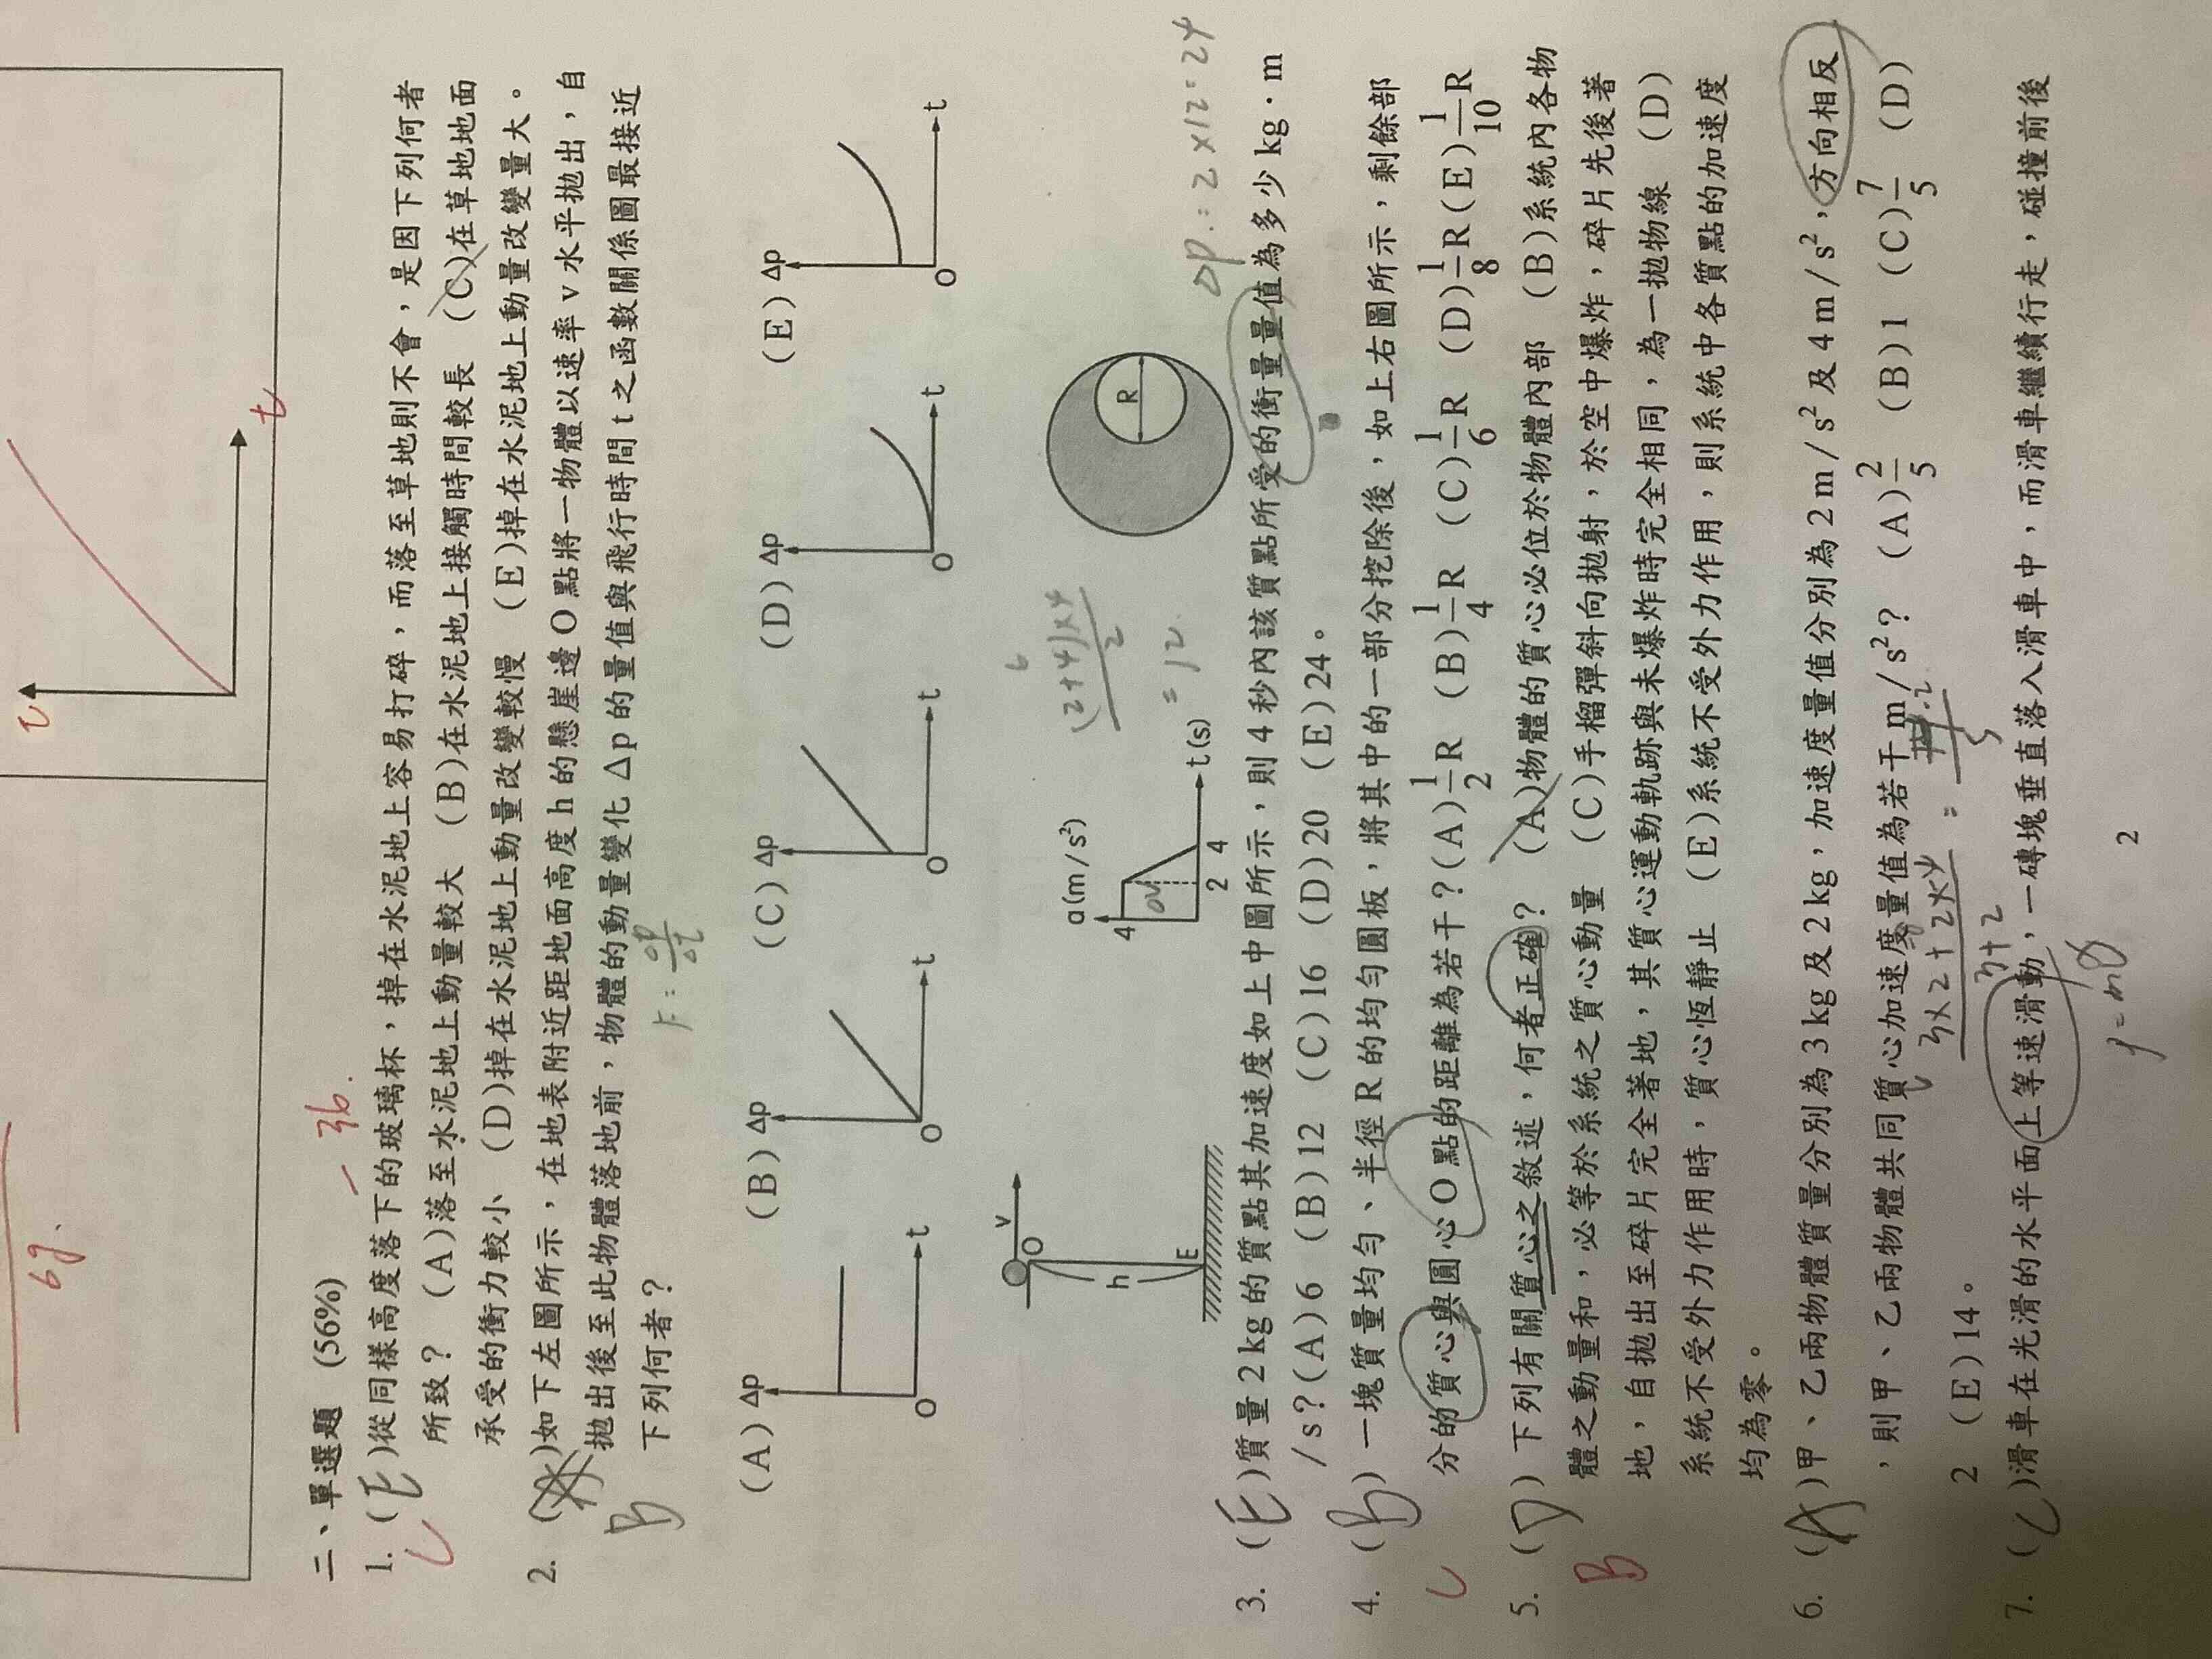 τ
t
6g.
-36.
二、單選題 (56%)
1. (E)從同樣高度落下的玻璃杯，掉在水泥地上容易打碎，而落至草地則不會，是因下列何者
C
所致？ (A)落至水泥地上動量較大 (B)在水泥地上接觸時間較長 (C)在草地地面
承受的衝力較小 (D)掉在水泥地上動量改變較慢 (E)掉在水泥地上動量改變量大。
2. ( )如下左圖所示，在地表附近距地面高度 h 的懸崖邊 O 點將一物體以速率 v 水平拋出，自
B
拋出後至此物體落地前，物體的動量變化 Δp 的量值與飛行時間 t 之函數關係圖最接近
下列何者？
F=Δp/Δt
(A) Δp O t
(B) Δp O t
(C) Δp O t
(D) Δp O t
(E) Δp O t
v
O
h
E
a(m/s²)
4
ΔV
2 4 t(s)
(2+4)×4/2
6
=12
R
ΔP=2×12=24
3. (E)質量 2 kg 的質點其加速度如上中圖所示，則 4 秒內該質點所受的衝量量值為多少 kg·m
/s? (A) 6 (B) 12 (C) 16 (D) 20 (E) 24。
4. (B) 一塊質量均勻、半徑 R 的均勻圓板，將其中的一部分挖除後，如上右圖所示，剩餘部
C
分的質心與圓心 O 點的距離為若干？(A) 1/2 R (B) 1/4 R (C) 1/6 R (D) 1/8 R (E) 1/10 R
5. (D) 下列有關質心之敘述，何者正確？ (A)物體的質心必位於物體內部 (B)系統內各物
B
體之動量和，必等於系統之質心動量 (C)手榴彈斜向拋射，於空中爆炸，碎片先後著
地，自拋出至碎片完全著地，其質心運動軌跡與未爆炸時完全相同，為一拋物線 (D)
系統不受外力作用時，質心恆靜止 (E)系統不受外力作用，則系統中各質點的加速度
均為零。
6. (A)甲、乙兩物體質量分別為 3 kg 及 2 kg，加速度量值分別為 2 m/s² 及 4 m/s²，方向相反
，則甲、乙兩物體共同質心加速度量值為若干 m/s²？ (A) 2/5 (B) 1 (C) 7/5 (D)
2 (E) 14。
3×2+2×4/3+2 =
7. (C)滑車在光滑的水平面上等速滑動，一磚塊垂直落入滑車中，而滑車繼續行走，碰撞前後
2